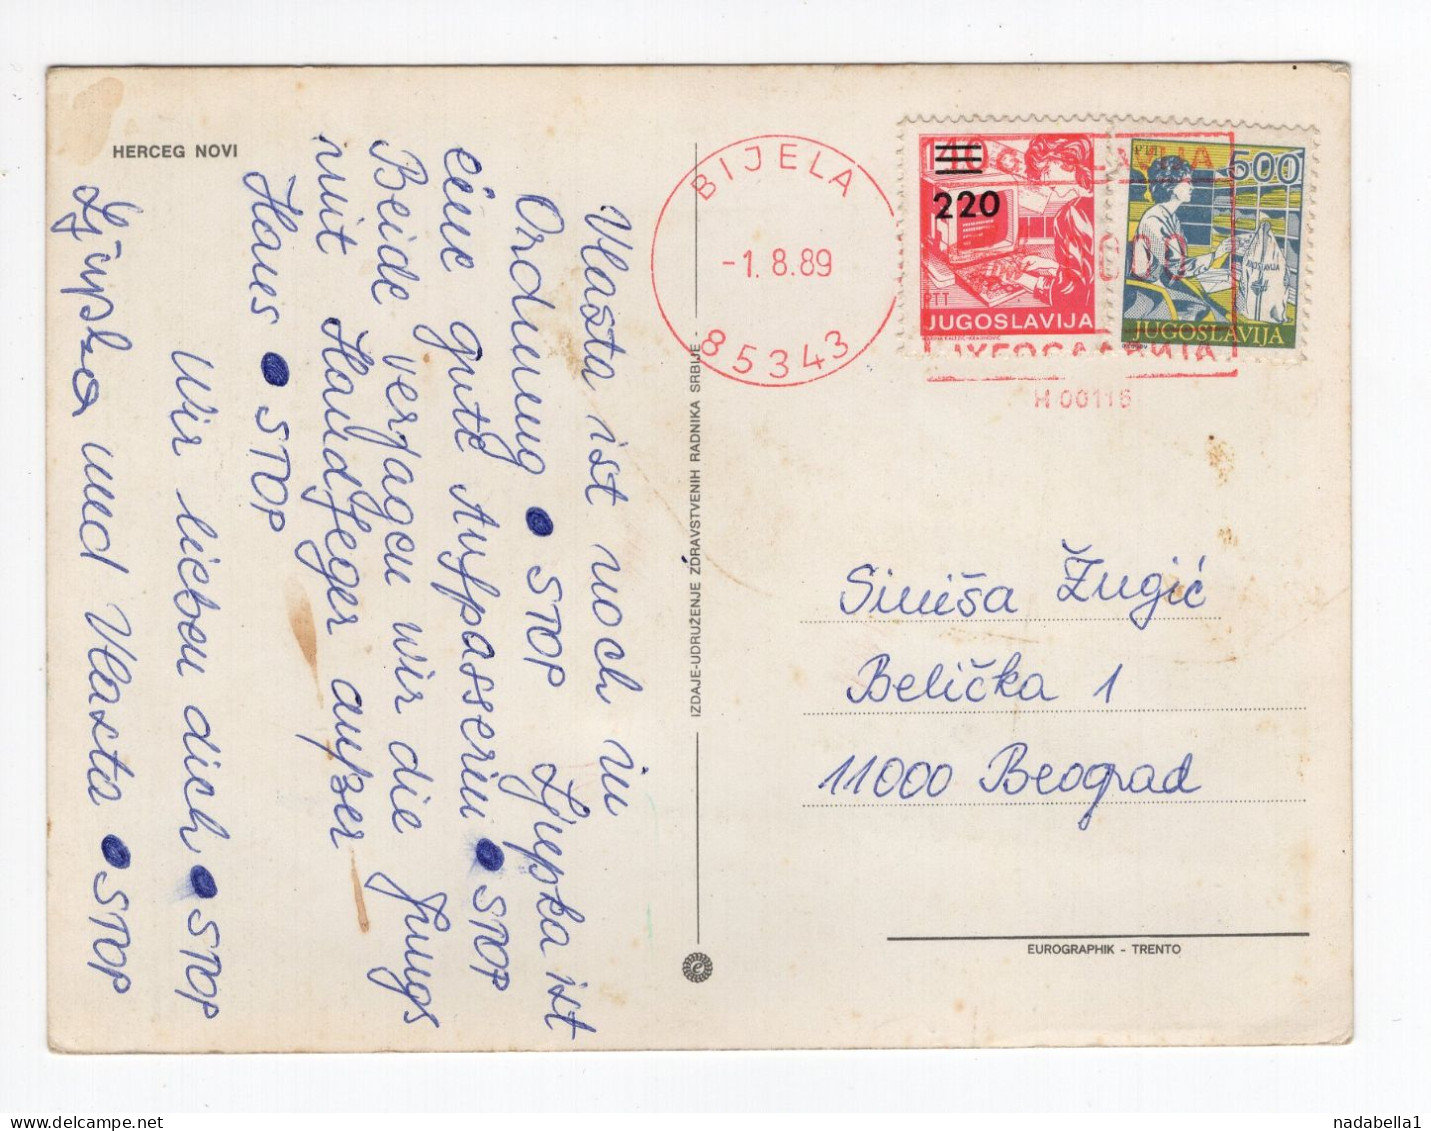 HERCEG NOVI
Vlasta ist noch in
Ordnung • STOP Ljupka ist
eine gute Aufpasserin • STOP
Beide verjagen wir die Jungs
mit Handfeger außer
Haus • STOP
Wir lieben dich • STOP
Ljupka und Vlasta • STOP
IZDAJE-UDRUŽENJE ZDRAVSTVENIH RADNIKA SRBIJE -
BIJELA
-1.8.89
85343
140
220
PTT
JUGOSLAVIJA
500
JUGOSLAVIJA
H 00116
Siniša Žugić
Belička 1
11000 Beograd
EUROGRAPHIK - TRENTO
nadabella1